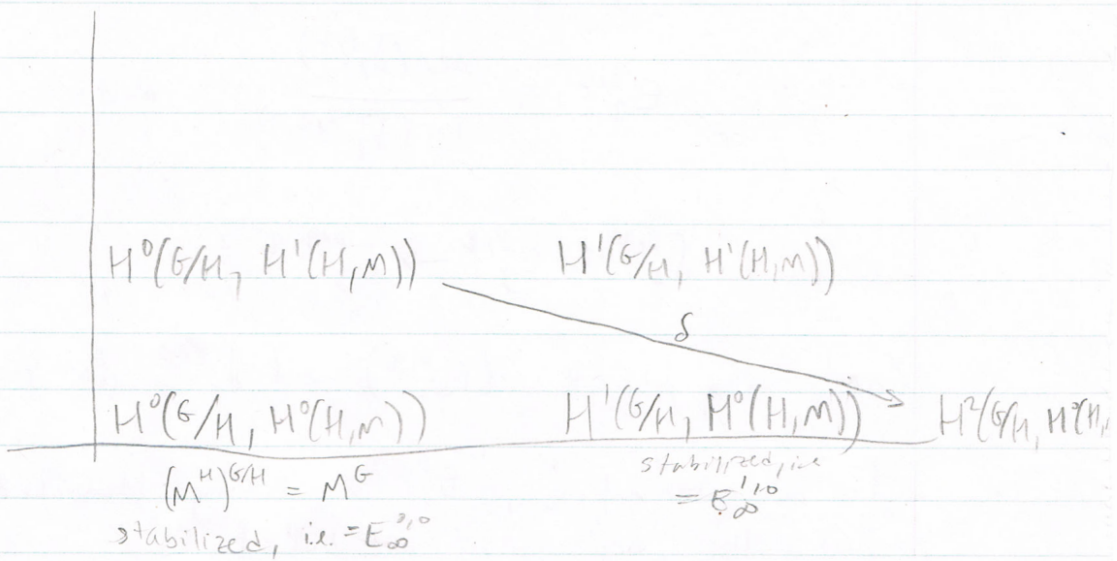 H⁰(G/H, H¹(H,M)) H¹(G/H, H¹(H,M))
δ
H⁰(G/H, H⁰(H,M)) H¹(G/H, H⁰(H,M)) H²(G/H, H⁰(H,
(M^H)^{G/H} = M^G stabilized, i.e
= E_∞^{1,0}
stabilized, i.e. = E_∞^{0,0}